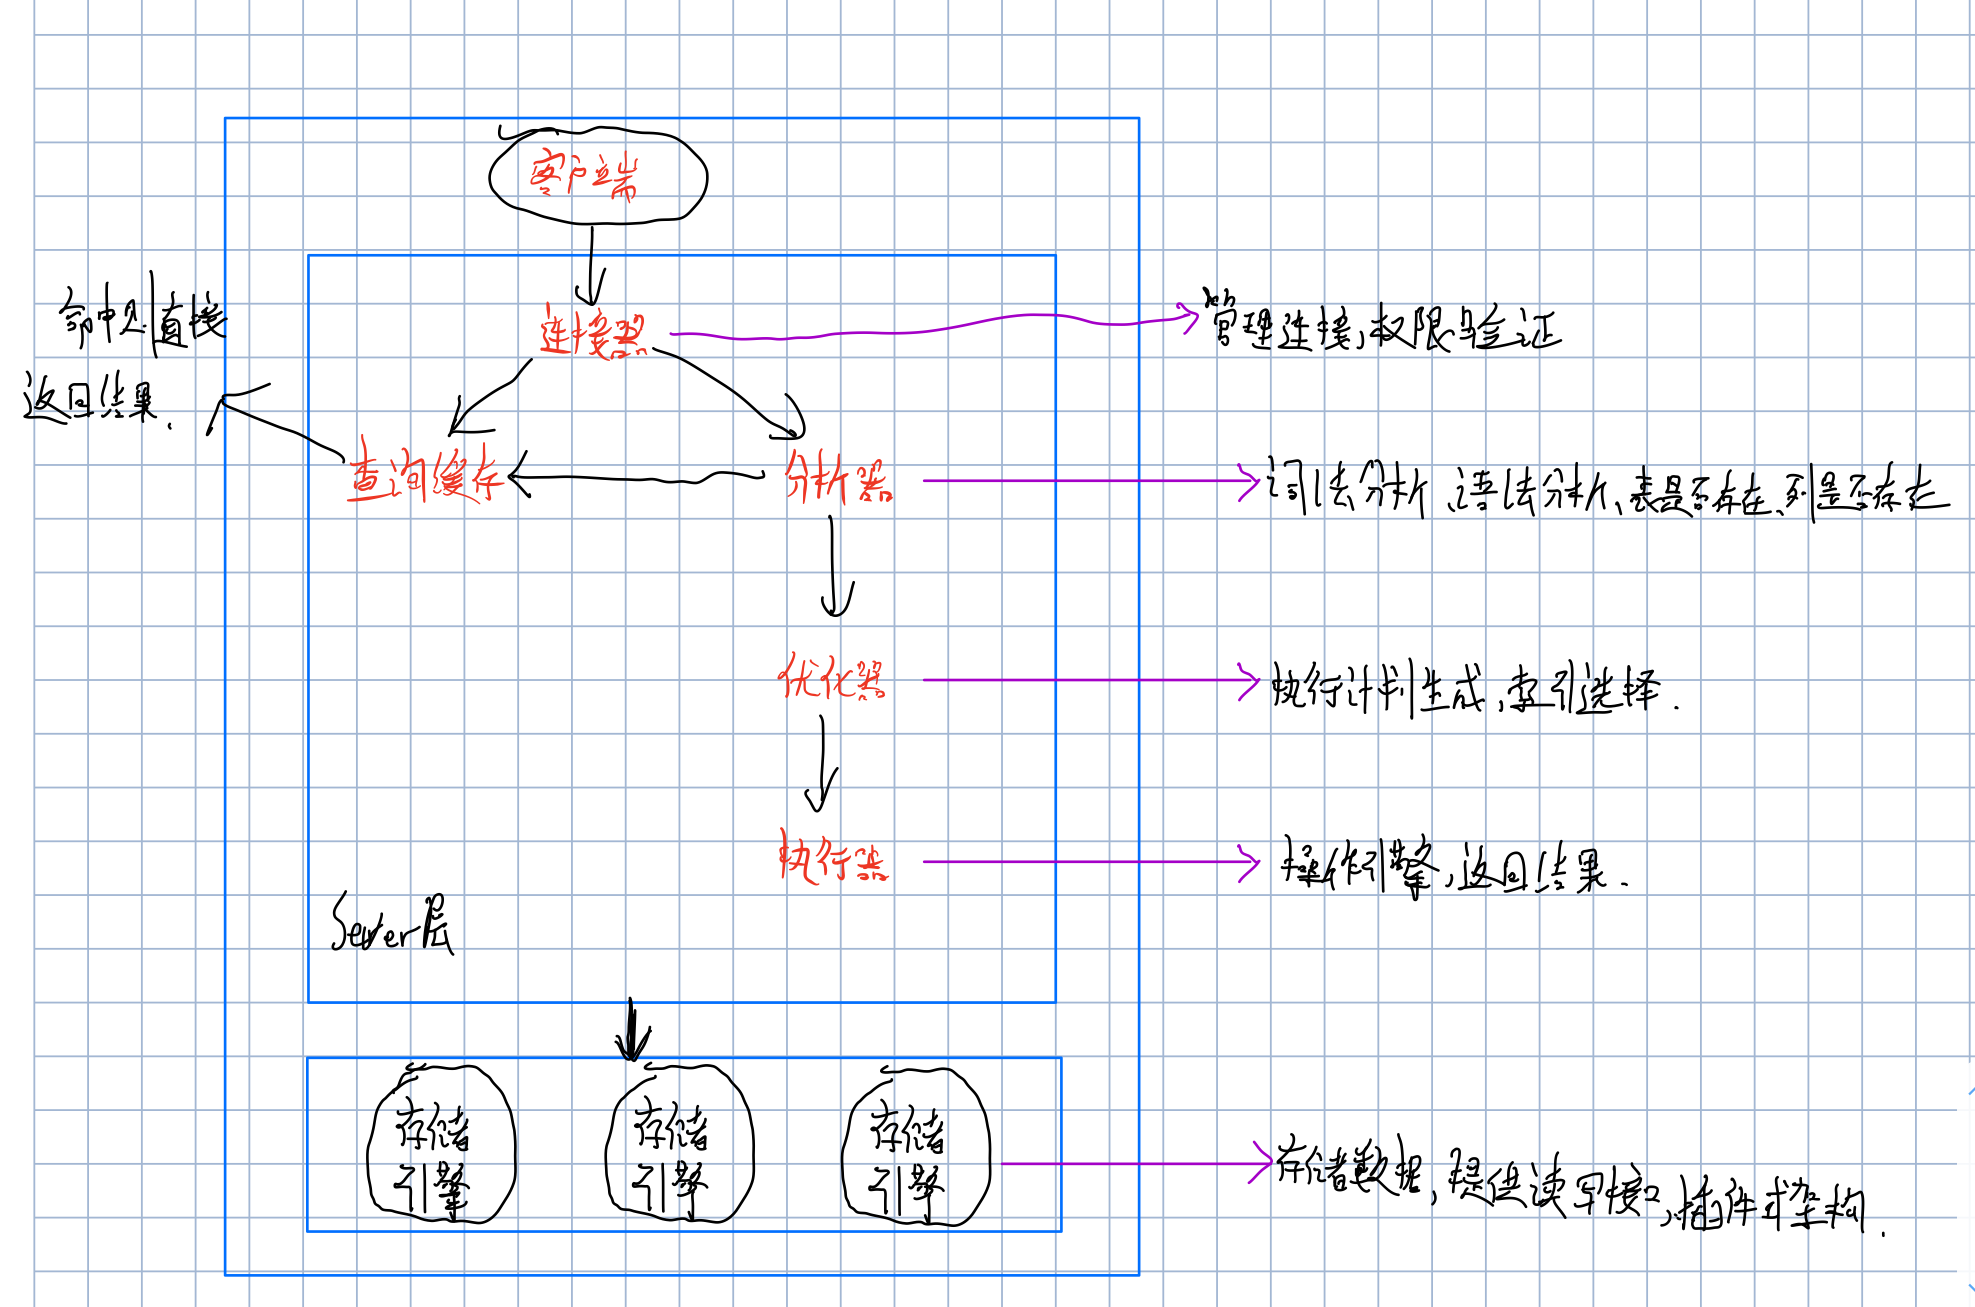 客户端
连接器
管理连接,权限验证
命中则直接
返回结果.
查询缓存
分析器
词法分析、语法分析、表是否存在、列是否存在
优化器
执行计划生成,索引选择.
执行器
操作引擎,返回结果.
Server层
存储
引擎
存储
引擎
存储
引擎
存储数据,提供读写接口,插件式架构.